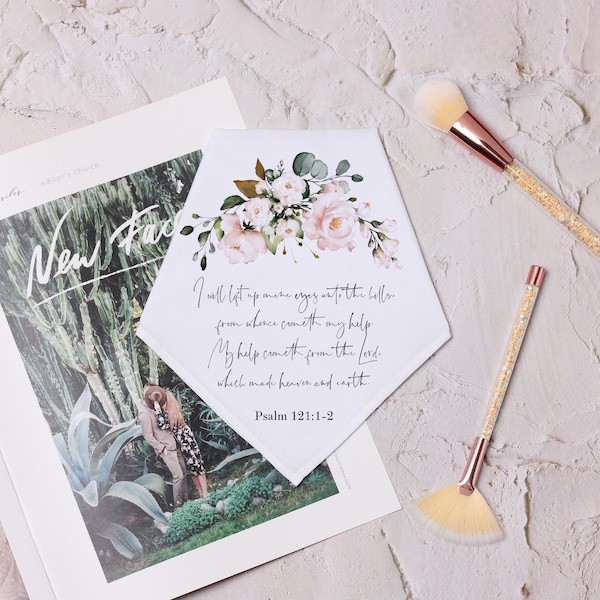 editor's choice
New Fac
I will lift up mine eyes unto the hills,
from whence cometh my help.
My help cometh from the Lord,
which made heaven and earth.
Psalm 121:1-2